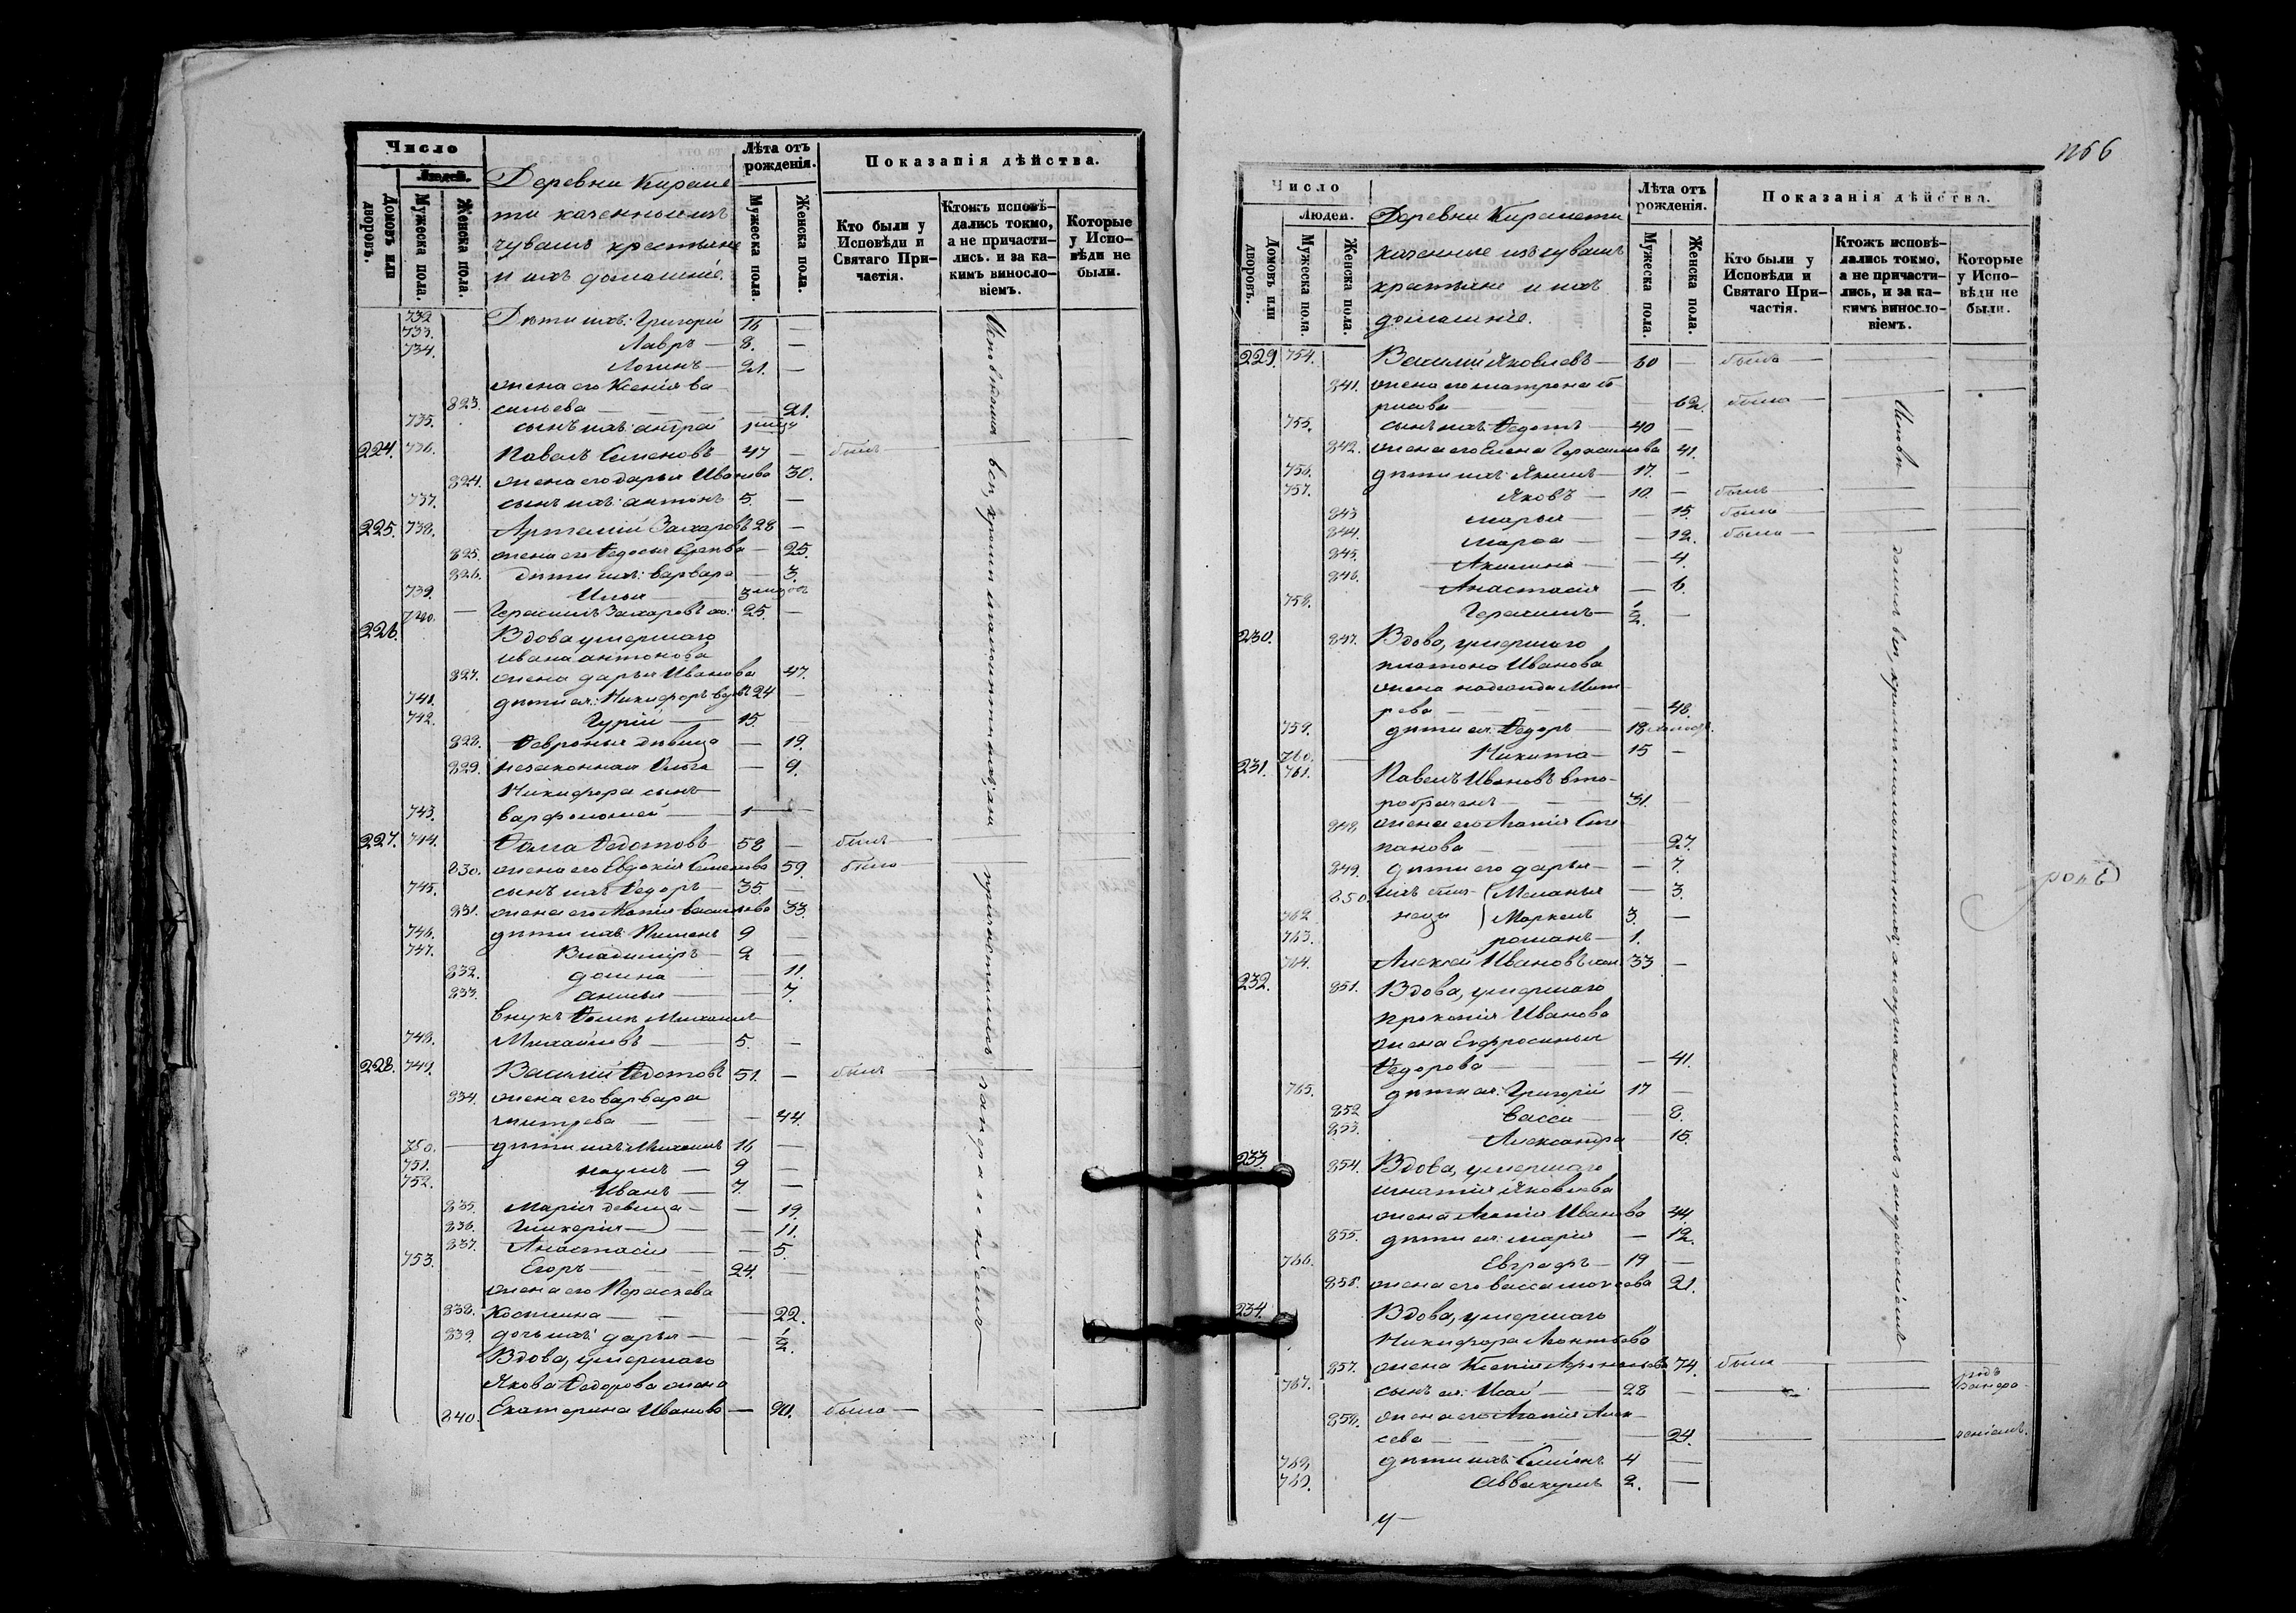 Число
Людей.
Домовъ или дворовъ.
Мужеска пола.
Женска пола.
Деревни Кираме
ти казенныихъ
чувашъ крестьяне
и ихъ домашніе.
Лѣта отъ рожденія.
Мужеска пола.
Женска пола.
Показанія дѣйства.
Кто были у Исповѣди и Святаго Причастія.
Ктожъ исповѣдались токмо, а не причастились. и за какимъ виносло-віемъ.
Которые у Исповѣди не были.
732 Дѣти ихъ: Григорій 16 —
733. Лавръ — 8. —
734. Логинъ — 21. —
жена его Ксенія Ва
823. сильева — 21.
735. сынъ ихъ: Андрей
224. 736. Павелъ Семеновъ 47 — былъ
824. жена его Дарья Иванова 30.
737. сынъ ихъ: Антонъ 5. —
225. 738. Артемій Захаровъ 28 —
825. жена его Федосья — 25.
826. дѣти ихъ: Варвара — 3.
739. Илья
740. — Герасимъ Захаровъ 25. —
226. Вдова умершаго
Ивана Антонова
827. жена Дарья Иванова 47.
741. дѣти ея: Никифоръ 24 —
742. Гурій — 15. —
828. Февронья дѣвица — 19.
829. незаконная Ольга — 9.
Никифора сынъ
743. Варфоломей — 1 —
227. 744. Фома Федотовъ 58 — былъ
830. жена его Евдокія Семенова 59. была
745. сынъ ихъ Федоръ — 35. —
831. жена его Агапія Васильева 33.
746. дѣти ихъ: Пименъ 9 —
747. Владиміръ — 2 —
832. Домна — 11.
833. Анисья — 7.
внукъ Фомы Михаилъ
748. Михайловъ — 5. —
228. 749. Василій Федотовъ 51. — былъ
834. жена его Варвара
митрева — 44.
750. — дѣти ихъ: Михаилъ 16 —
751. Наумъ — 9 —
752. Иванъ — 7. —
835. Марія девица — 19.
836. Гликерія — 11.
837. Анастасія — 5.
753. Егоръ — 24. —
жена его Параскева
838. Космина — 22.
839. дочь ихъ: Дарья — ½.
Вдова, умершаго
Якова Федорова жена
840. Екатерина Иванова — 90. была
Исповѣдались всѣ, кромѣ малолѣтнихъ, а не причастились за нерасположеніемъ
1166
Число
Людей.
Домовъ или дворовъ.
Мужеска пола.
Женска пола.
Деревни Кирамети
казенные изъ чувашъ
крестьяне и ихъ
домашніе.
Лѣта отъ рожденія.
Мужеска пола.
Женска пола.
Показанія дѣйства.
Кто были у Исповѣди и Святаго Причастія.
Ктожъ исповѣдались токмо, а не причастились, и за какимъ виносло-віемъ.
Которые у Исповѣди не были.
229. 754. Василій Яковлевъ — 60 — былъ
841. жена его Матрена Бо
рисова — 62. была
755. сынъ ихъ Федотъ — 40 —
842. жена его Елена Герасимова 41.
756. дѣти ихъ: Якимъ — 17. —
757. Яковъ — 10. — былъ
843 Марья — 15. была
844. Марфа — 12. была
845. Акилина — 4.
846. Анастасія — 6.
758. Герасимъ — ½. —
230. 847. Вдова, умершаго
Платона Иванова
жена Надежда Мит
рева — 48.
759. дѣти ея: Федоръ — 18
760. — Никита — 15 —
231. 761. Павелъ Ивановъ вто-
робраченъ — 31. —
848 жена его Агапія Сте
панова — 27.
849. дѣти его Дарья — 7.
850. ихъ близ- Меланья — 3.
762 нецы Маркелъ 3. —
763. Романъ — 1.
764. Алексій Ивановъ 33 —
232. 851. Вдова, умершаго
Прокопія Иванова
жена Евфросинья
Федорова — 41.
765. дѣти ея: Григорій 17 —
852 Васса — 8.
853. Александра — 15.
233. 854. Вдова, умершаго
Игнатія Яковлева
жена Агапія Иванова 44.
855. дѣти ея: Марія — 12.
766. Евграфъ — 19 —
856. жена его Васса Моисеева 21.
234. Вдова, умершаго
Никифора Леонтьева
857. жена Ксенія 74. была
767. сынъ ея: Исай — 28 —
858. жена его Агапія Алек-
сева — 24.
768. дѣти ихъ: Симеонъ 4 —
769. Аввакумъ 2. —
Исповѣдались всѣ, кромѣ малолѣтнихъ, а не причастились за нерасположеніемъ